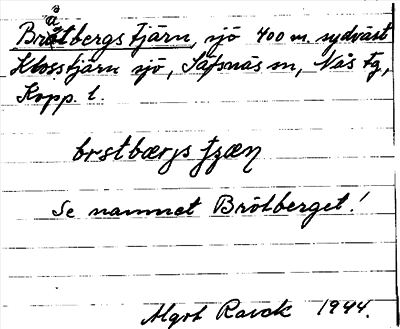 Brötbergs tjärn, sjö 700 m. sydväst
Klosstjärn sjö, Säfsnäs sn, Nås tg,
Kopp. l.
brstbærjs
Se namnet Brötberget!
Algot Rarck 1944.